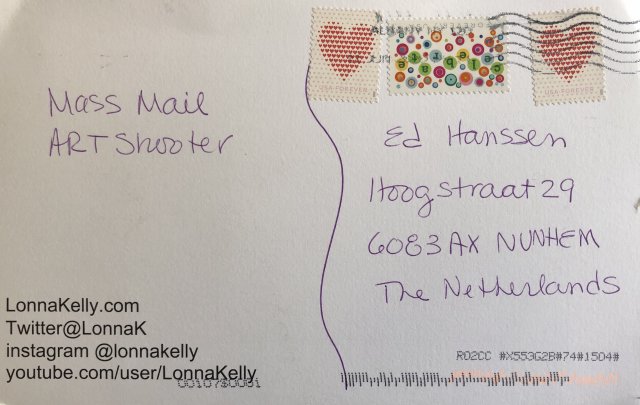 USA FOREVER
celebrate
USA FOREVER
Mass Mail
ART Shooter
Ed Hanssen
Hoogstraat 29
6083 AX NUNHEM
The Netherlands
LonnaKelly.com
Twitter@LonnaK
instagram @lonnakelly
youtube.com/user/LonnaKelly
R02CC #X553G2B#74#1504#